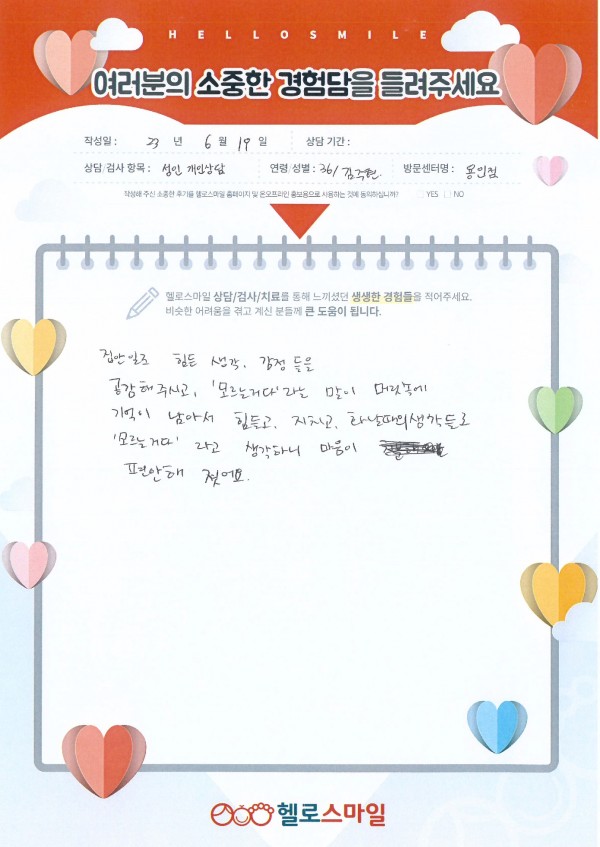 HELLOSMILE
여러분의 소중한 경험담을 들려주세요
작성일 : 23 년 6 월 19 일 상담 기간 :
상담/검사 항목 : 성인 개인상담 연령/성별 : 36/ 김주현 방문센터명 : 용인점
작성해 주신 소중한 후기를 헬로스마일 홈페이지 및 온오프라인 홍보용으로 사용하는 것에 동의하십니까? YES NO
헬로스마일 상담/검사/치료를 통해 느끼셨던 생생한 경험들을 적어주세요.
비슷한 어려움을 겪고 계신 분들께 큰 도움이 됩니다.
집안일로 힘든 생각, 감정 들을
공감해주시고, '모르는거다'라는 말이 머릿속에
기억이 남아서 힘들고, 지치고, 화날때의생각들로
'모르는거다' 라고 생각하니 마음이
편안해 졌어요.
헬로스마일